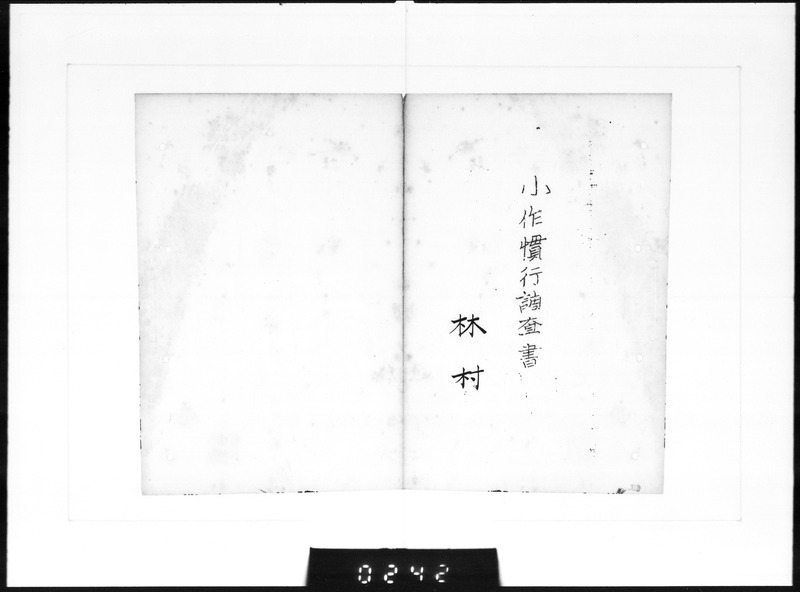 小作慣行調査書
林村
0242